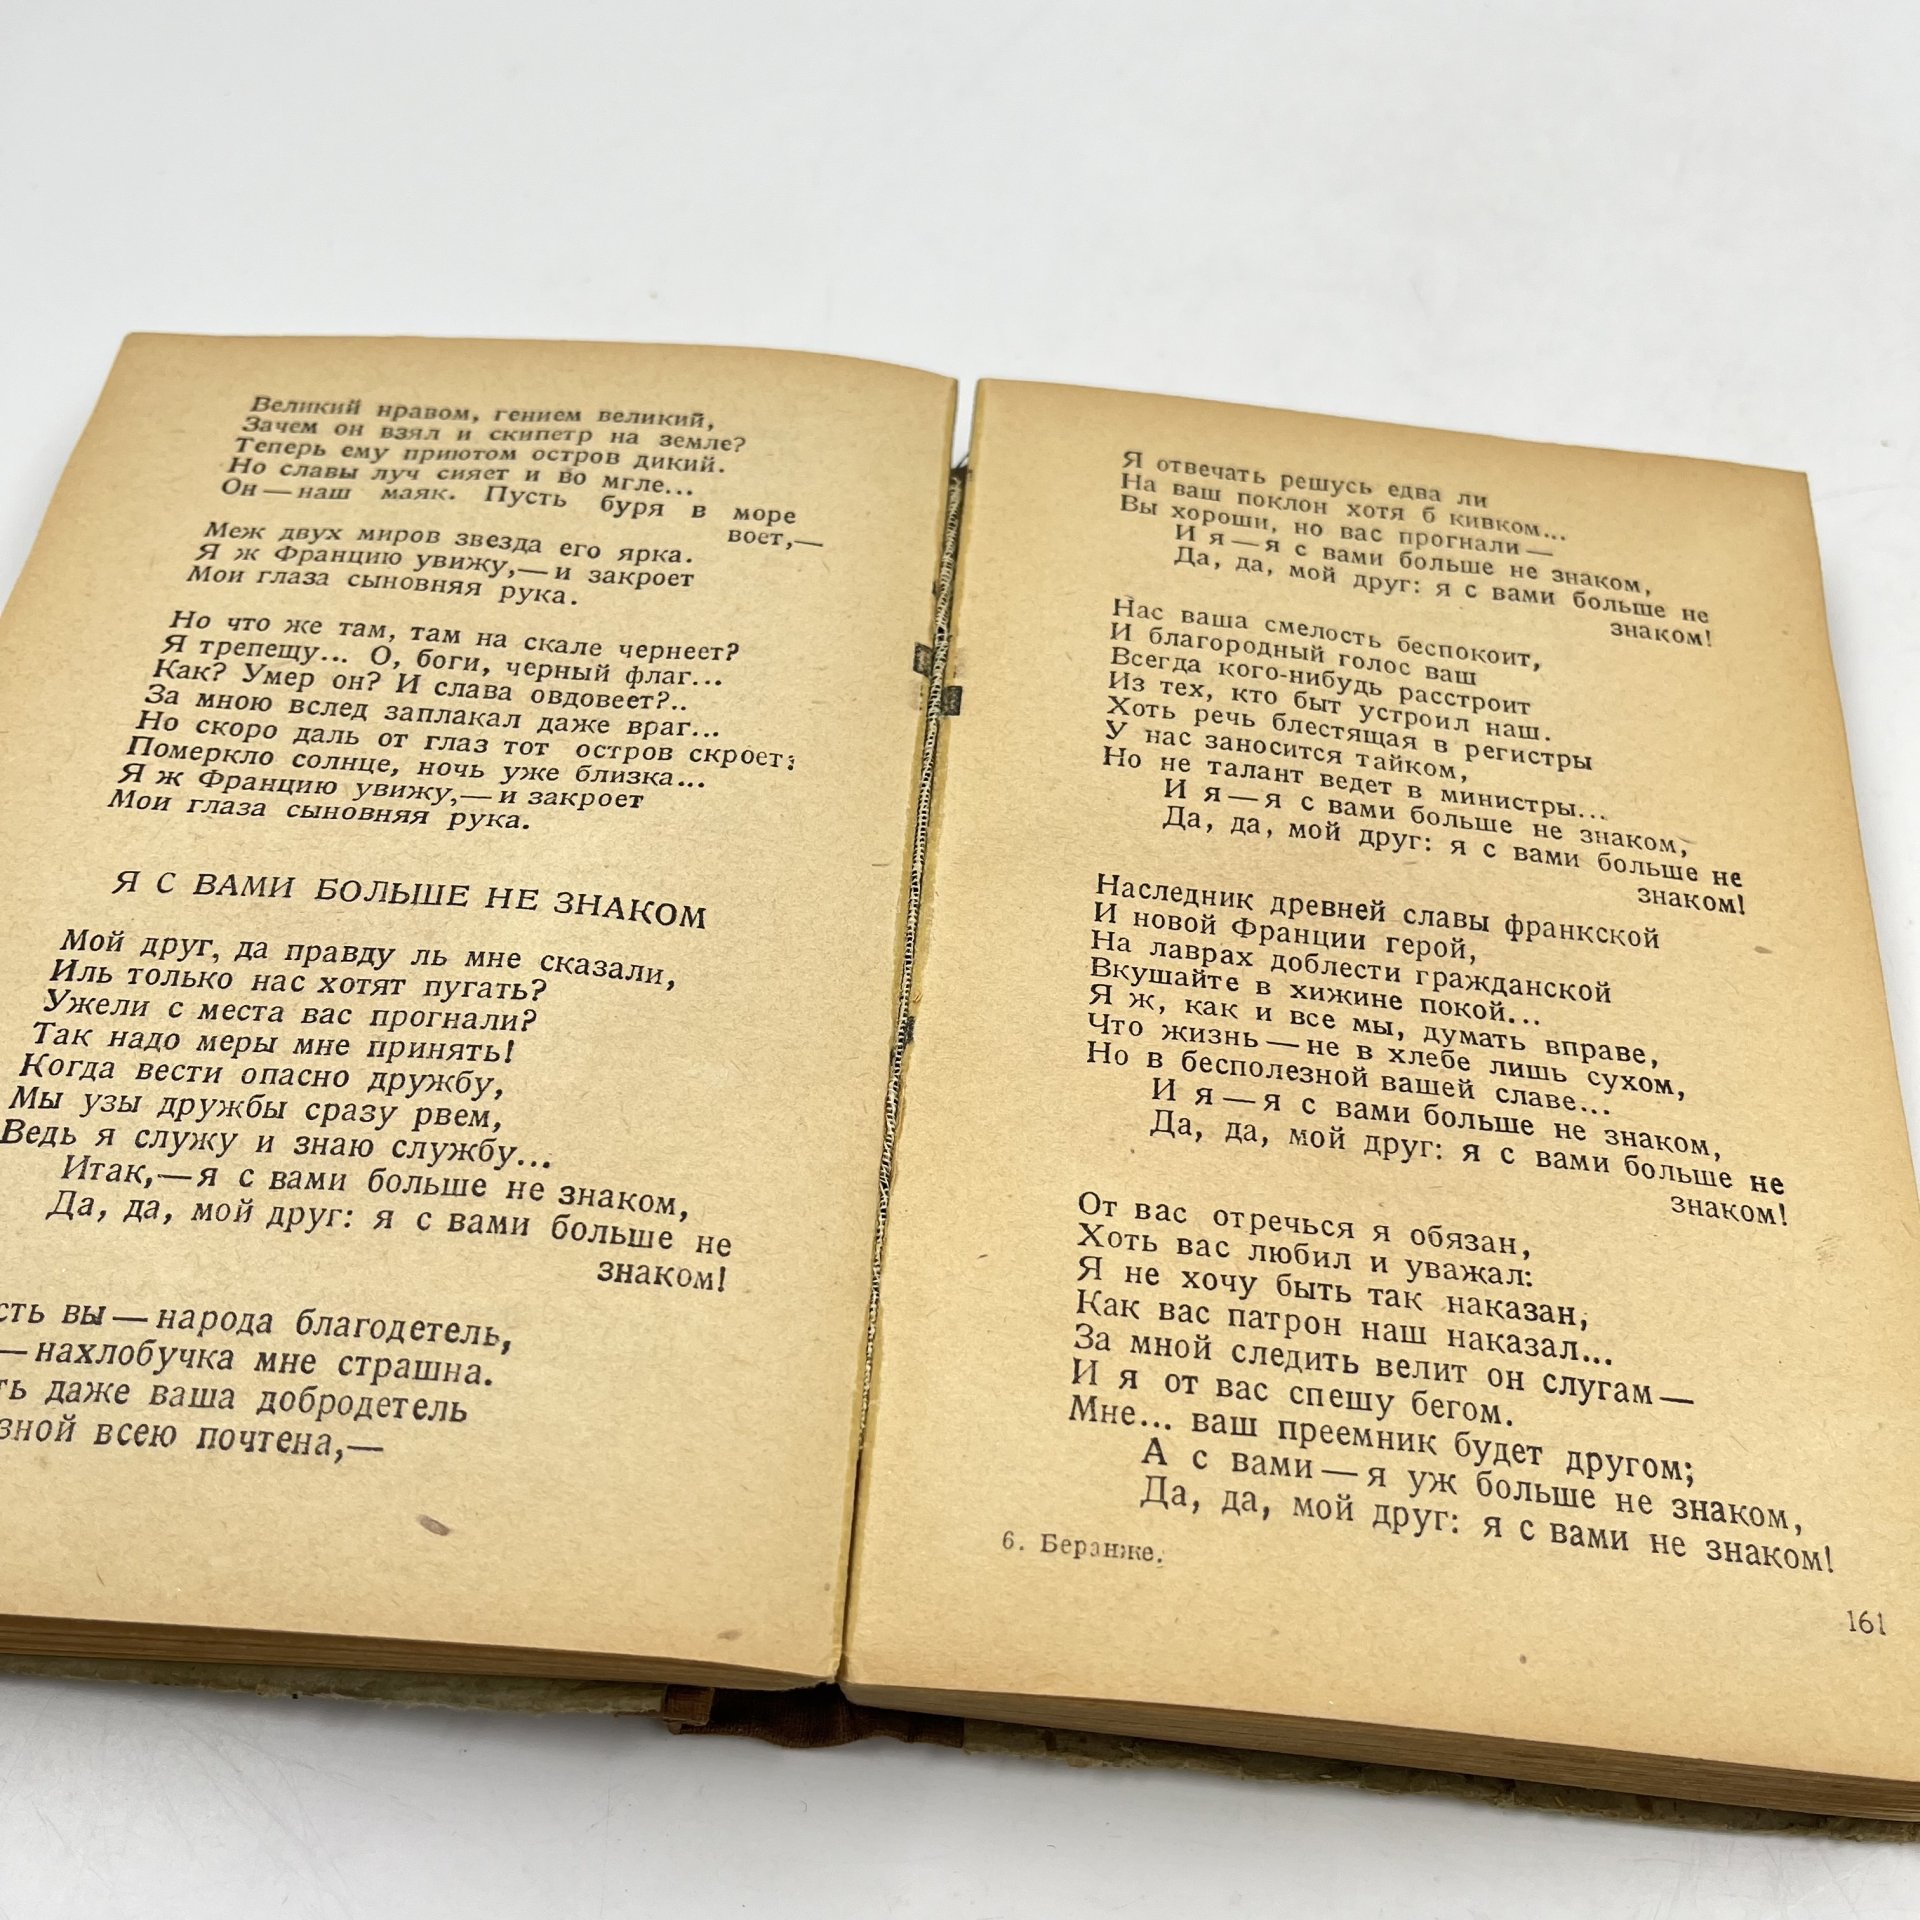 Великий нравом, гением великий,
Зачем он взял и скипетр на земле?
Теперь ему приютом остров дикий.
Но славы луч сияет и во мгле...
Он — наш маяк. Пусть буря в море
воет,—
Меж двух миров звезда его ярка.
Я ж Францию увижу,— и закроет
Мои глаза сыновняя рука.
Но что же там, там на скале чернеет?
Я трепещу... О, боги, черный флаг...
Как? Умер он? И слава овдовеет?..
За мною вслед заплакал даже враг...
Но скоро даль от глаз тот остров скроет;
Померкло солнце, ночь уже близка...
Я ж Францию увижу,— и закроет
Мои глаза сыновняя рука.
Я С ВАМИ БОЛЬШЕ НЕ ЗНАКОМ
Мой друг, да правду ль мне сказали,
Иль только нас хотят пугать?
Ужели с места вас прогнали?
Так надо меры мне принять!
Когда вести опасно дружбу,
Мы узы дружбы сразу рвем,
Ведь я служу и знаю службу...
Итак,—я с вами больше не знаком,
Да, да, мой друг: я с вами больше не
знаком!
сть вы — народа благодетель,
— нахлобучка мне страшна.
ть даже ваша добродетель
зной всею почтена,—
Я отвечать решусь едва ли
На ваш поклон хотя б кивком...
Вы хороши, но вас прогнали —
И я — я с вами больше не знаком,
Да, да, мой друг: я с вами больше не
знаком!
Нас ваша смелость беспокоит,
И благородный голос ваш
Всегда кого-нибудь расстроит
Из тех, кто быт устроил наш.
Хоть речь блестящая в регистры
У нас заносится тайком,
Но не талант ведет в министры...
И я — я с вами больше не знаком,
Да, да, мой друг: я с вами больше не
знаком!
Наследник древней славы франкской
И новой Франции герой,
На лаврах доблести гражданской
Вкушайте в хижине покой...
Я ж, как и все мы, думать вправе,
Что жизнь — не в хлебе лишь сухом,
Но в бесполезной вашей славе...
И я — я с вами больше не знаком,
Да, да, мой друг: я с вами больше не
знаком!
От вас отречься я обязан,
Хоть вас любил и уважал:
Я не хочу быть так наказан,
Как вас патрон наш наказал...
За мной следить велит он слугам —
И я от вас спешу бегом.
Мне... ваш преемник будет другом;
А с вами — я уж больше не знаком,
Да, да, мой друг: я с вами не знаком!
6. Беранже.
161